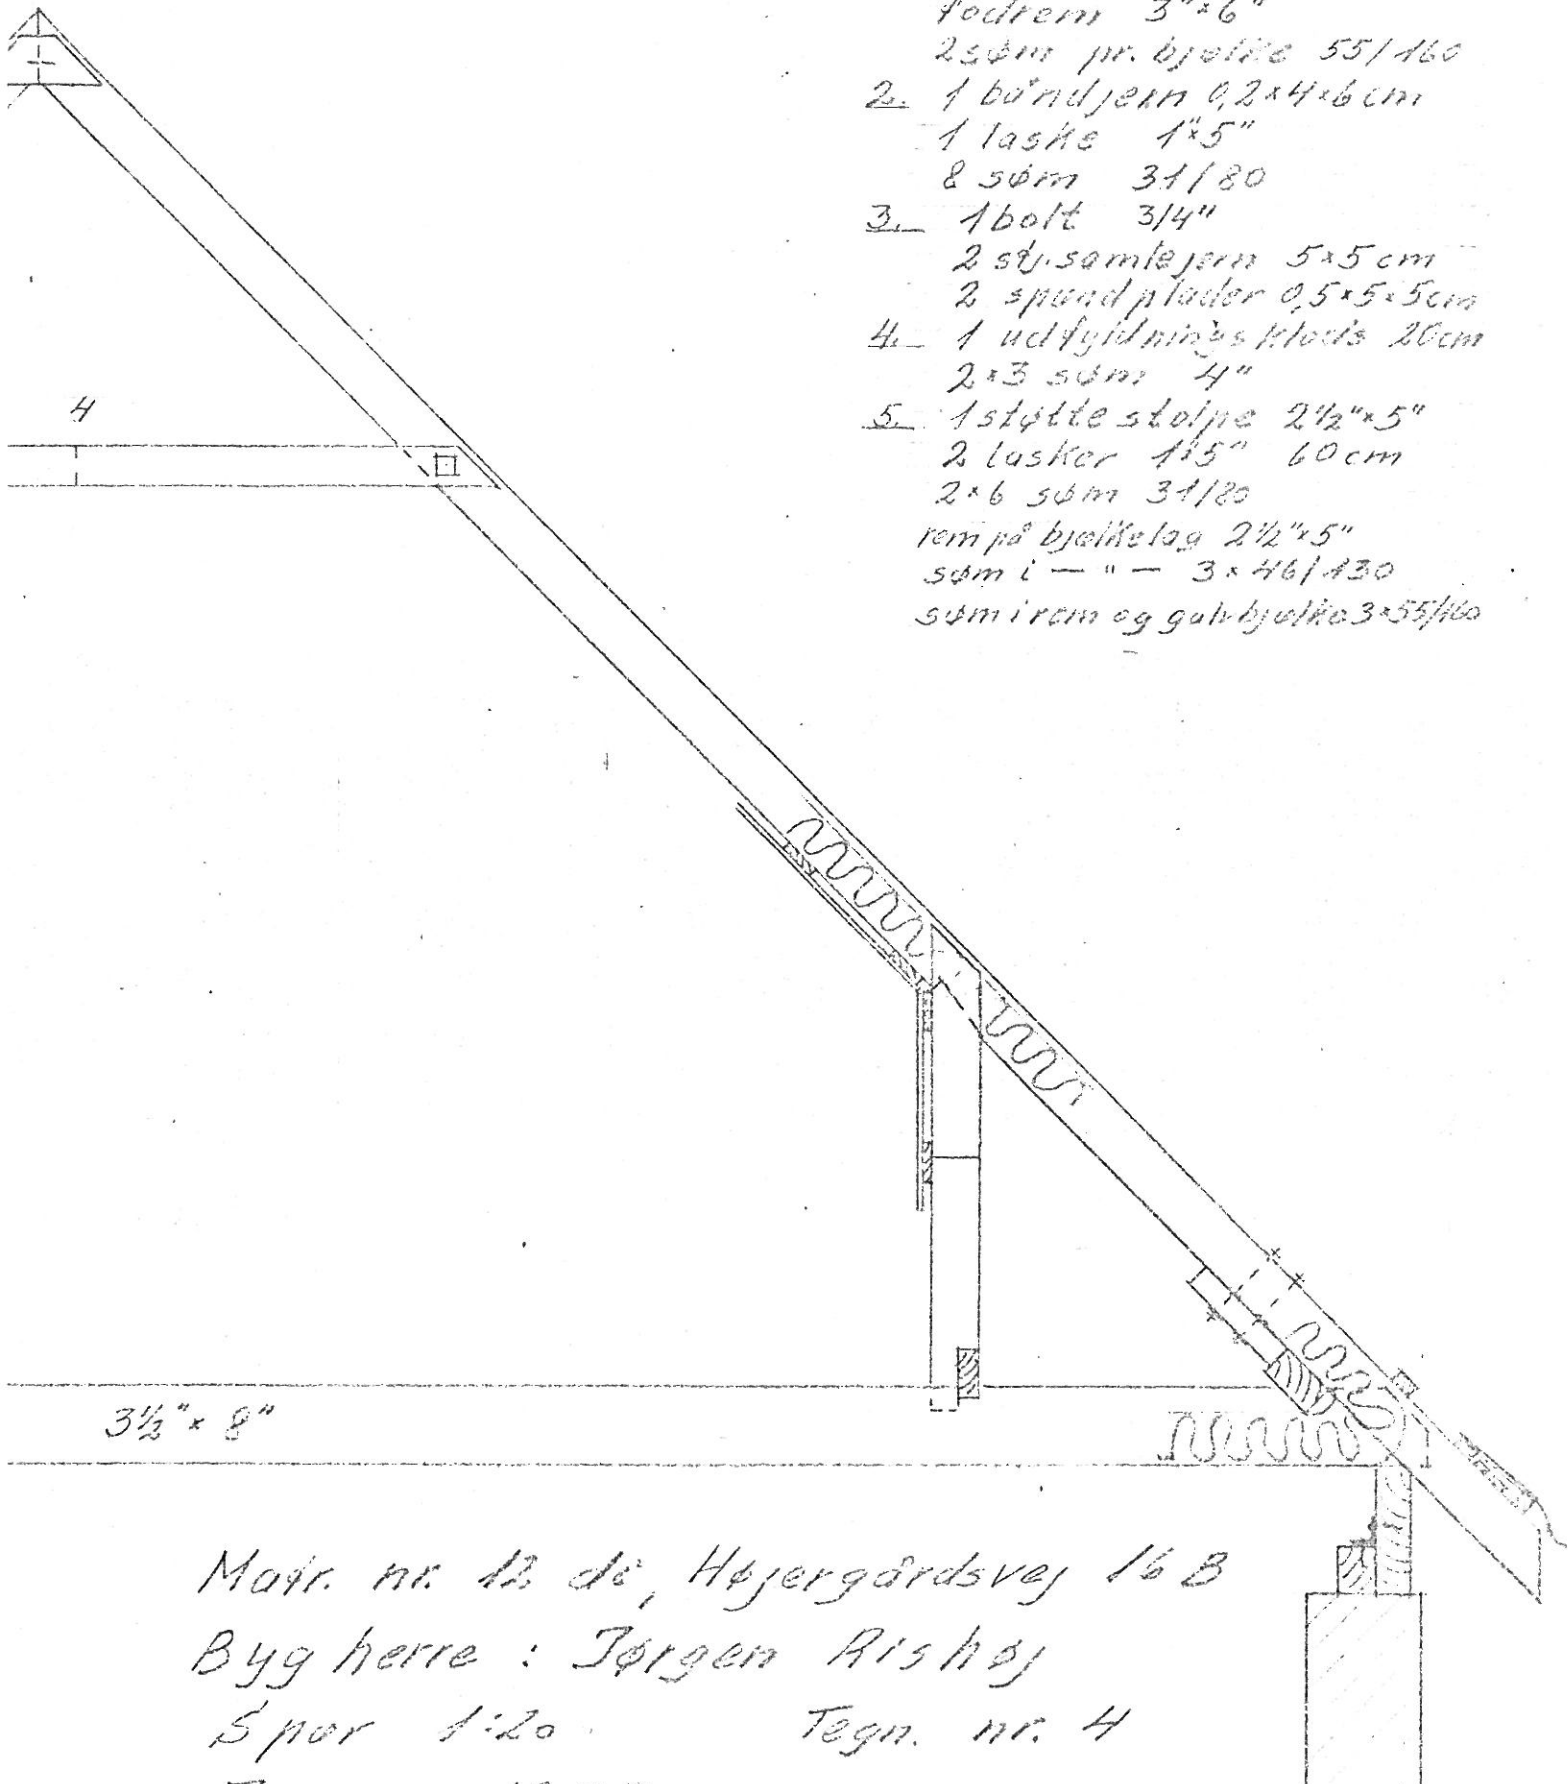 fodrem 3"×6"
2 søm pr. bjælke 55/160
2. 1 båndjern 0,2×4×6 cm
1 laske 1"×5"
8 søm 31/80
3. 1 bolt 3/4"
2 stj. samlejern 5×5 cm
2 spændplader 0,5×5×5cm
4. 1 udfyldningsklods 20cm
2×3 søm 4"
5. 1 støtte stolpe 2½"×5"
2 lasker 1"×5" 60 cm
2×6 søm 31/80
rem på bjælkelag 2½"×5"
søm i — " — 3×46/130
søm i rem og gulvbjælke 3×55/160
4
3½"× 8"
Matr. nr. 12 Højergårdsvej 16 B
Byg herre : Jørgen Rishøj
Spær 1:20 Tegn. nr. 4